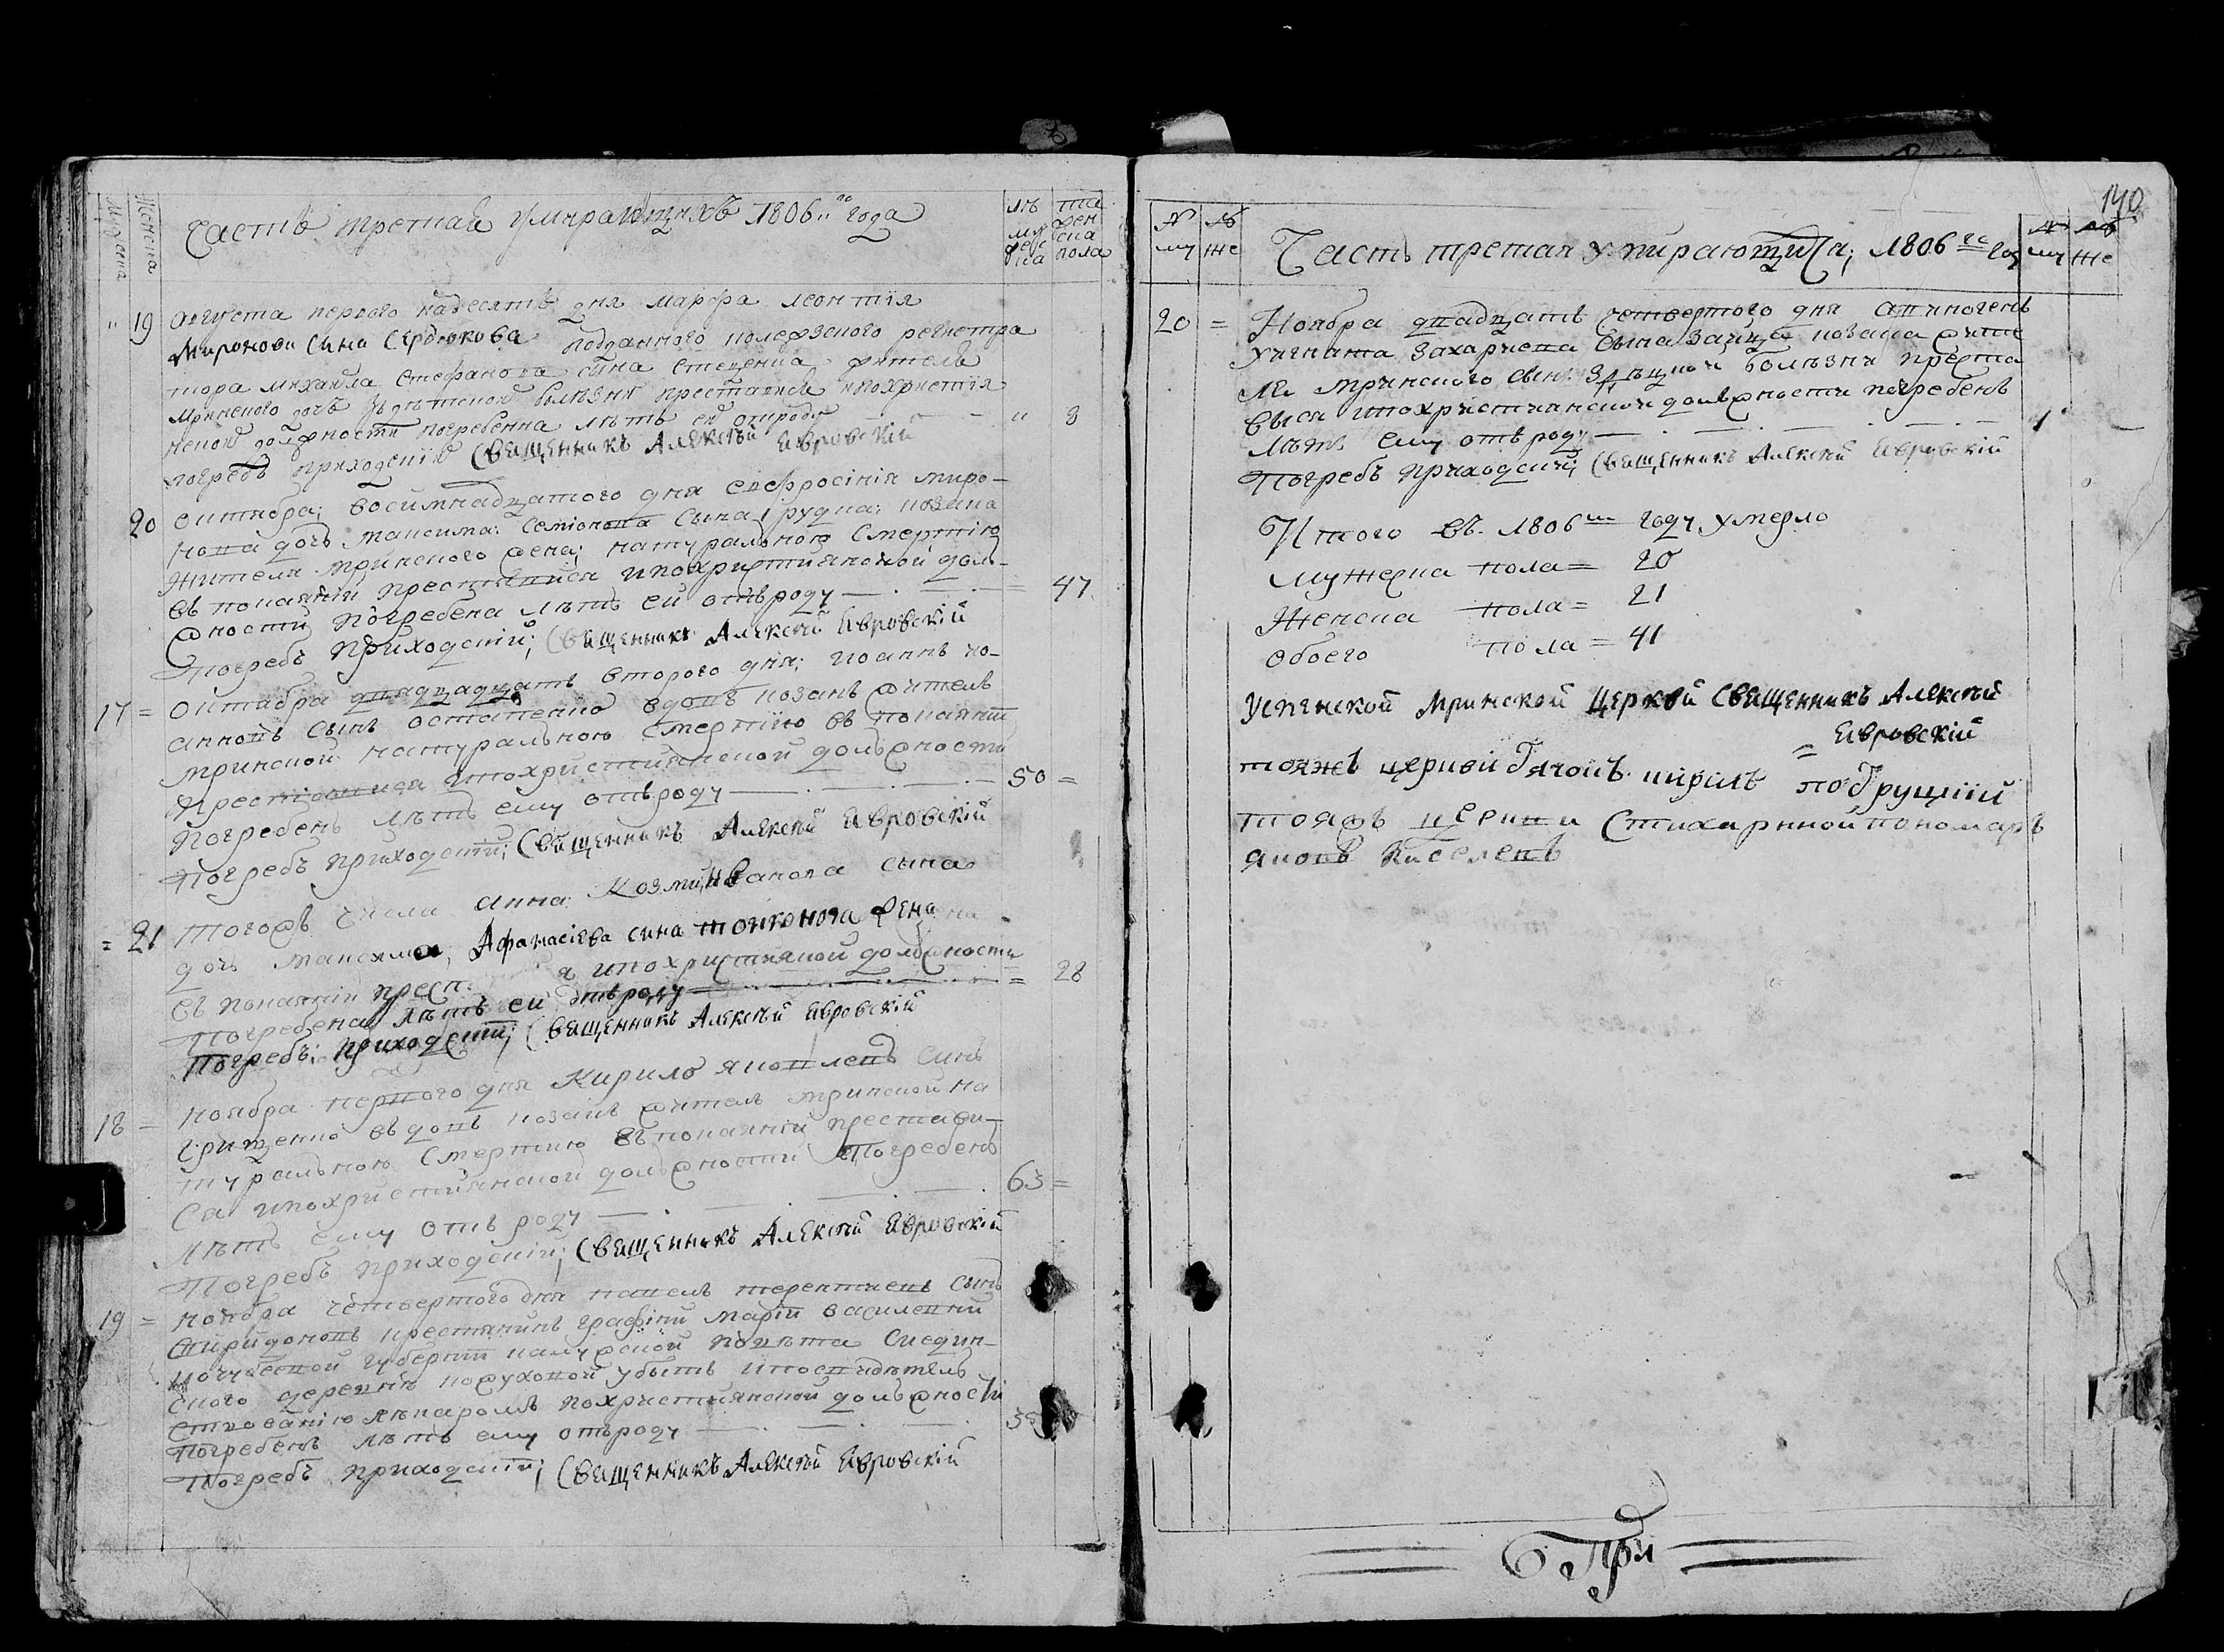 Мужеска
Женска
Часть третая умирающихъ 1806го года
лѣ та
му жен
жес ска
ка пола
19 Августа первого надесять дня марфа леонтія
Миронови Сина Сердюкова подданного
тора михайла стефанова сина жителя
мринского дочъ преставися похристія
нской должности погребенна лѣтъ ей отроду 3
погребъ приходскій Священникъ Алексѣй Явровскій
20 Октября; восимнадцатого дня евфросинія миро-
нова дочъ максима семіонова сына рудна козака
жителя мринского жена; натуральною смертію
въ покаяніи преставися ипохристиянской дол-
жности погребена лѣтъ ей отъроду 47
Погребъ приходскій; Священникъ Алексѣй Явровскій
17 = Октября двадцать второго дня; иоаннъ ио-
анновъ сынъ остапенко вдовъ козакъ житель
мринской натуральною смертїю въ покаянїи
преставися ипохристиянской должности
Погребенъ лѣтъ ему отъроду 50 =
Погребъ приходскїй; Священникъ Алексѣй Явровскій
= 21 Тогожъ числа анна козми иванова сына
дочъ максима, Афанасіева сина тонконога жена
въ покаянїи прест я ипохристияной должности
Погребена лѣтъ ей отъроду = 28
Погребъ: приходскїй; Священникъ Алексѣй Явровскій
18 = Ноября первого дня Кирило яковлевъ синъ
грищенко вдовъ козакъ житель мринской на
туральною смертию въ покаянїй престави-
ся ипохристиянской должности Погребенъ
лѣтъ ему отъ роду 63 =
Погребъ приходскїй; Священникъ Алексѣй Явровскій
19 = Ноября четвертого дня павелъ терентиевъ сынъ
Спиридоновъ крестянинъ графіни марїи василевни
кочубеевой губернїи калужской повѣта
ского деревнѣ убытъ
похристиянской должности
Погребенъ лѣтъ ему отъроду
Погребъ приходскїй; Священникъ Алексѣй Явровскій
140
№ му № же
Часть третая умирающихся; 1806го год
№ му № же
20 = Ноября двадцать четвертого дня
захариева сына зайца козака жите
ля мринского сынъ болѣзни преста
вися ипохристиянской должности погребенъ
Лѣтъ ему отъроду 1
Погребъ приходскїй; Священникъ Алексѣй Явровскій
Итого въ 1806м году умерло
мужеска пола = 20
Женска пола = 21
обоего пола = 41
Успенской Мринской Церкви Священникъ Алексѣй
= Явровскій
тояжъ церкви Дячокъ кирилъ
тояжъ церкви Стихарнной пономаръ
яковъ Киселевъ
При